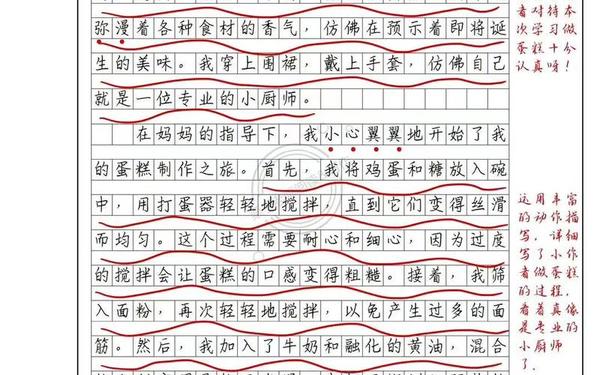 弥漫着各种食材的香气，仿佛在预示着即将诞
生的美味。我穿上围裙，戴上手套，仿佛自己
就是一位专业的小厨师。
在妈妈的指导下，我小心翼翼地开始了我
的蛋糕制作之旅。首先，我将鸡蛋和糖放入碗
中，用打蛋器轻轻地搅拌，直到它们变得丝滑
而均匀。这个过程需要耐心和细心，因为过度
的搅拌会让蛋糕的口感变得粗糙。接着，我筛
入面粉，再次轻轻地搅拌，以免产生过多的面
筋。然后，我加入了牛奶和融化的黄油，混合
者对待本
次学习做
蛋糕十分
认真呀！
运用丰富
的动作描
写，详细
写了小作
者做蛋糕
的过程，
看着真像
是专业的
小厨师
了．